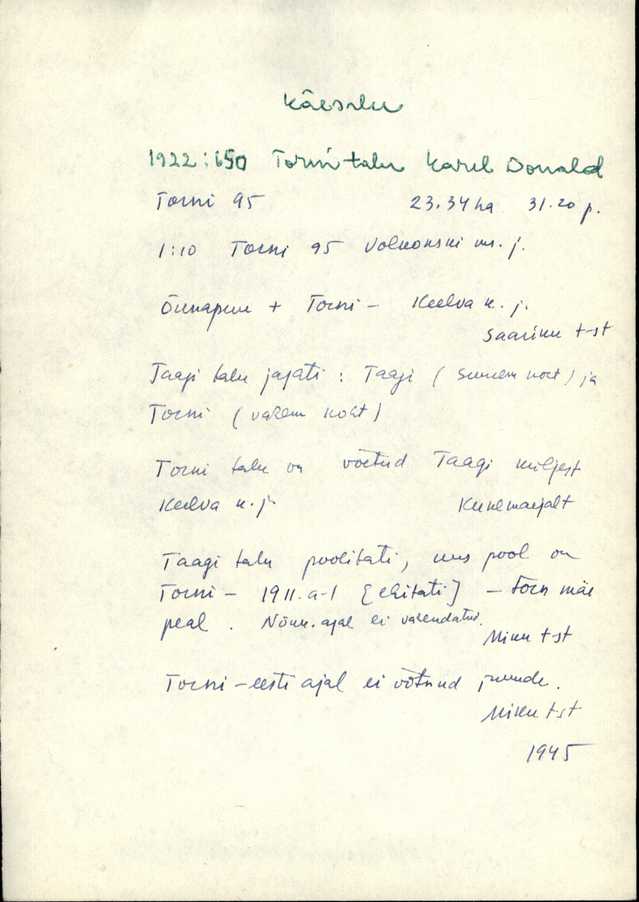 Käesalu
1922:650 Torni talu Karel Donald
Torni 95 23.34 ha 31.20 p.
1:10 Torni 95 Volkonski m. j.
Õunapuu + Torni - Keelva k. j.
Saariku t-st
Taagi talu jagati : Taagi ( suurem koht ) ja
Torni ( vähem koht )
Torni talu on võetud Taagi küljest
Keelva k. j.
Taagi talu poolitati, uus pool on
Torni - 1911. a-l [ehitati] - Torn mäe
peal . Nõuk. ajal ei vähendatud.
Miku t-st
Torni - eesti ajal ei võtnud juurde.
Miku t-st
1945